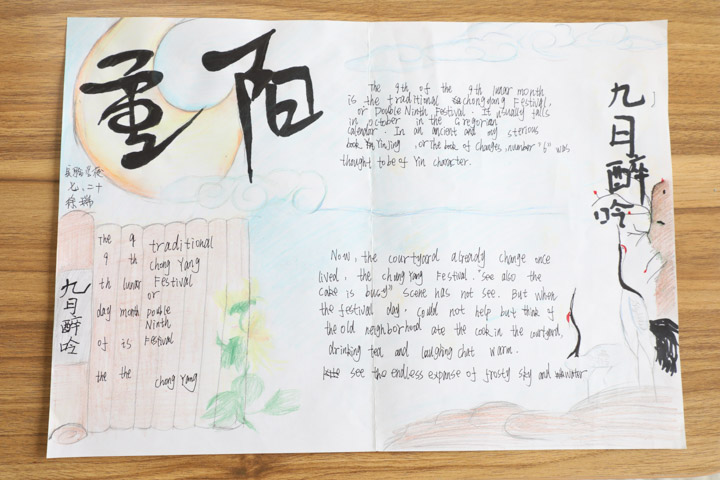 重阳
七、二十
The 9th of the 9th lunar month
is the traditional chongyang Festival,
or Double Ninth Festival. It usually falls
in october in the Gregorian
calendar. In an ancient and my sterious
book Yin Yinjing, or The book of Changes, number "6" was
thought to be of Yin character.
九月醉吟
The 9 traditional
9 th Chong Yang
th lunar Festival
or
day month Double
Ninth
of is Festival
the the Chong Yang
九月醉吟
Now, the courtyard already change once
lived, the chong Yang Festival. "see also the
cake is busy" scene has not see. But when
the festival day. could not help but think of
the old neighborhood ate the cook in the courtyard,
drinking tea and laughing chat warm.
see the endless expanse of frosty sky and winter